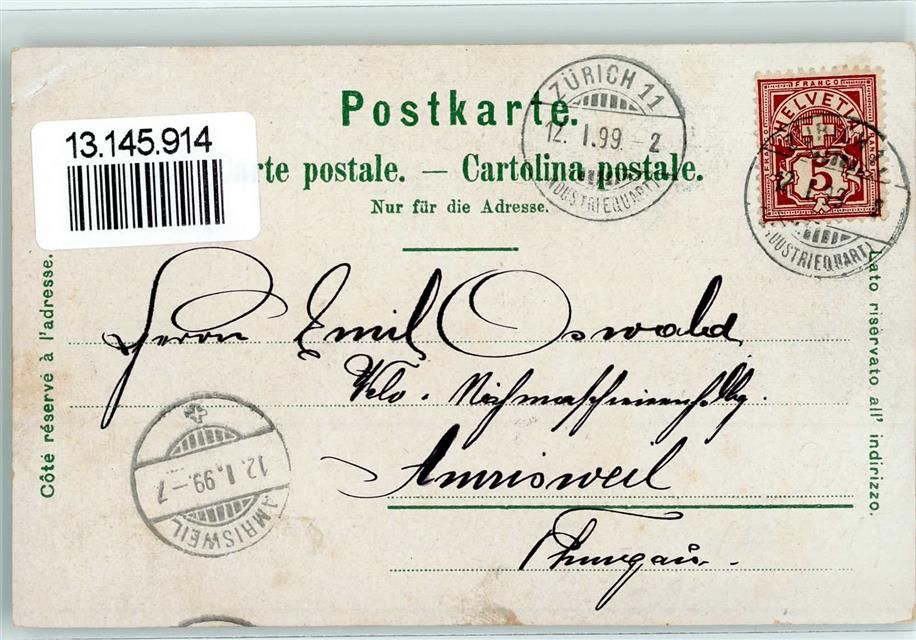 13.145.914
Postkarte.
Carte postale. — Cartolina postale.
Nur für die Adresse.
ZÜRICH 11
12. I. 99. - 2
INDUSTRIEQUART.
FRANCO
HELVETIA
5
12. I. 99
INDUSTRIEQUART.
Côté réservé à l'adresse.
Lato riservato all' indirizzo.
Herrn Emil Oswald
Velo. Nähmaschinenhdlg.
Amrisweil
Thurgau.
12. I. 99. - 7
AMRISWEIL